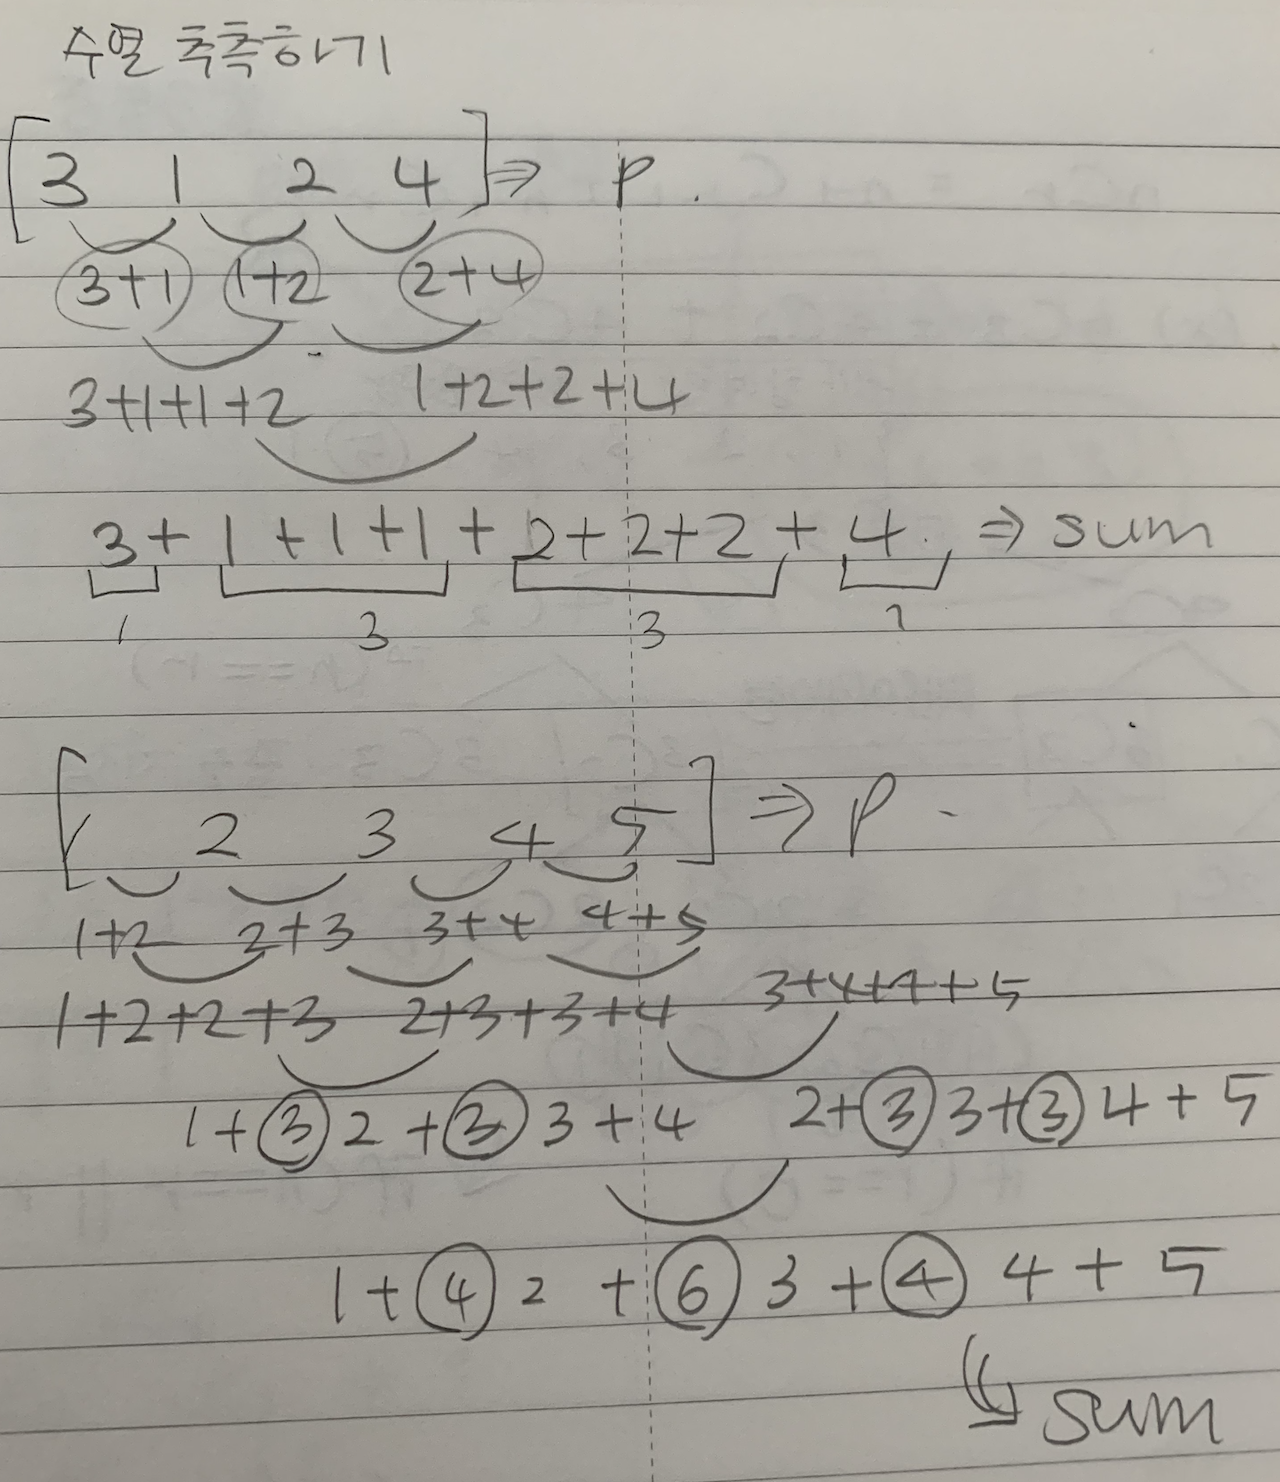 수열 추측하기
[3 1 2 4] ⇒ p.
3+1 1+2 2+4
3+1+1+2 1+2+2+4
3+1+1+1+2+2+2+4. ⇒ sum
1 3 3 1
[1 2 3 4 5] ⇒ p.
1+2 2+3 3+4 4+5
1+2+2+3 2+3+3+4 3+4+4+5
1+③2+③3+4 2+③3+③4+5
1+④2+⑥3+④4+5
sum